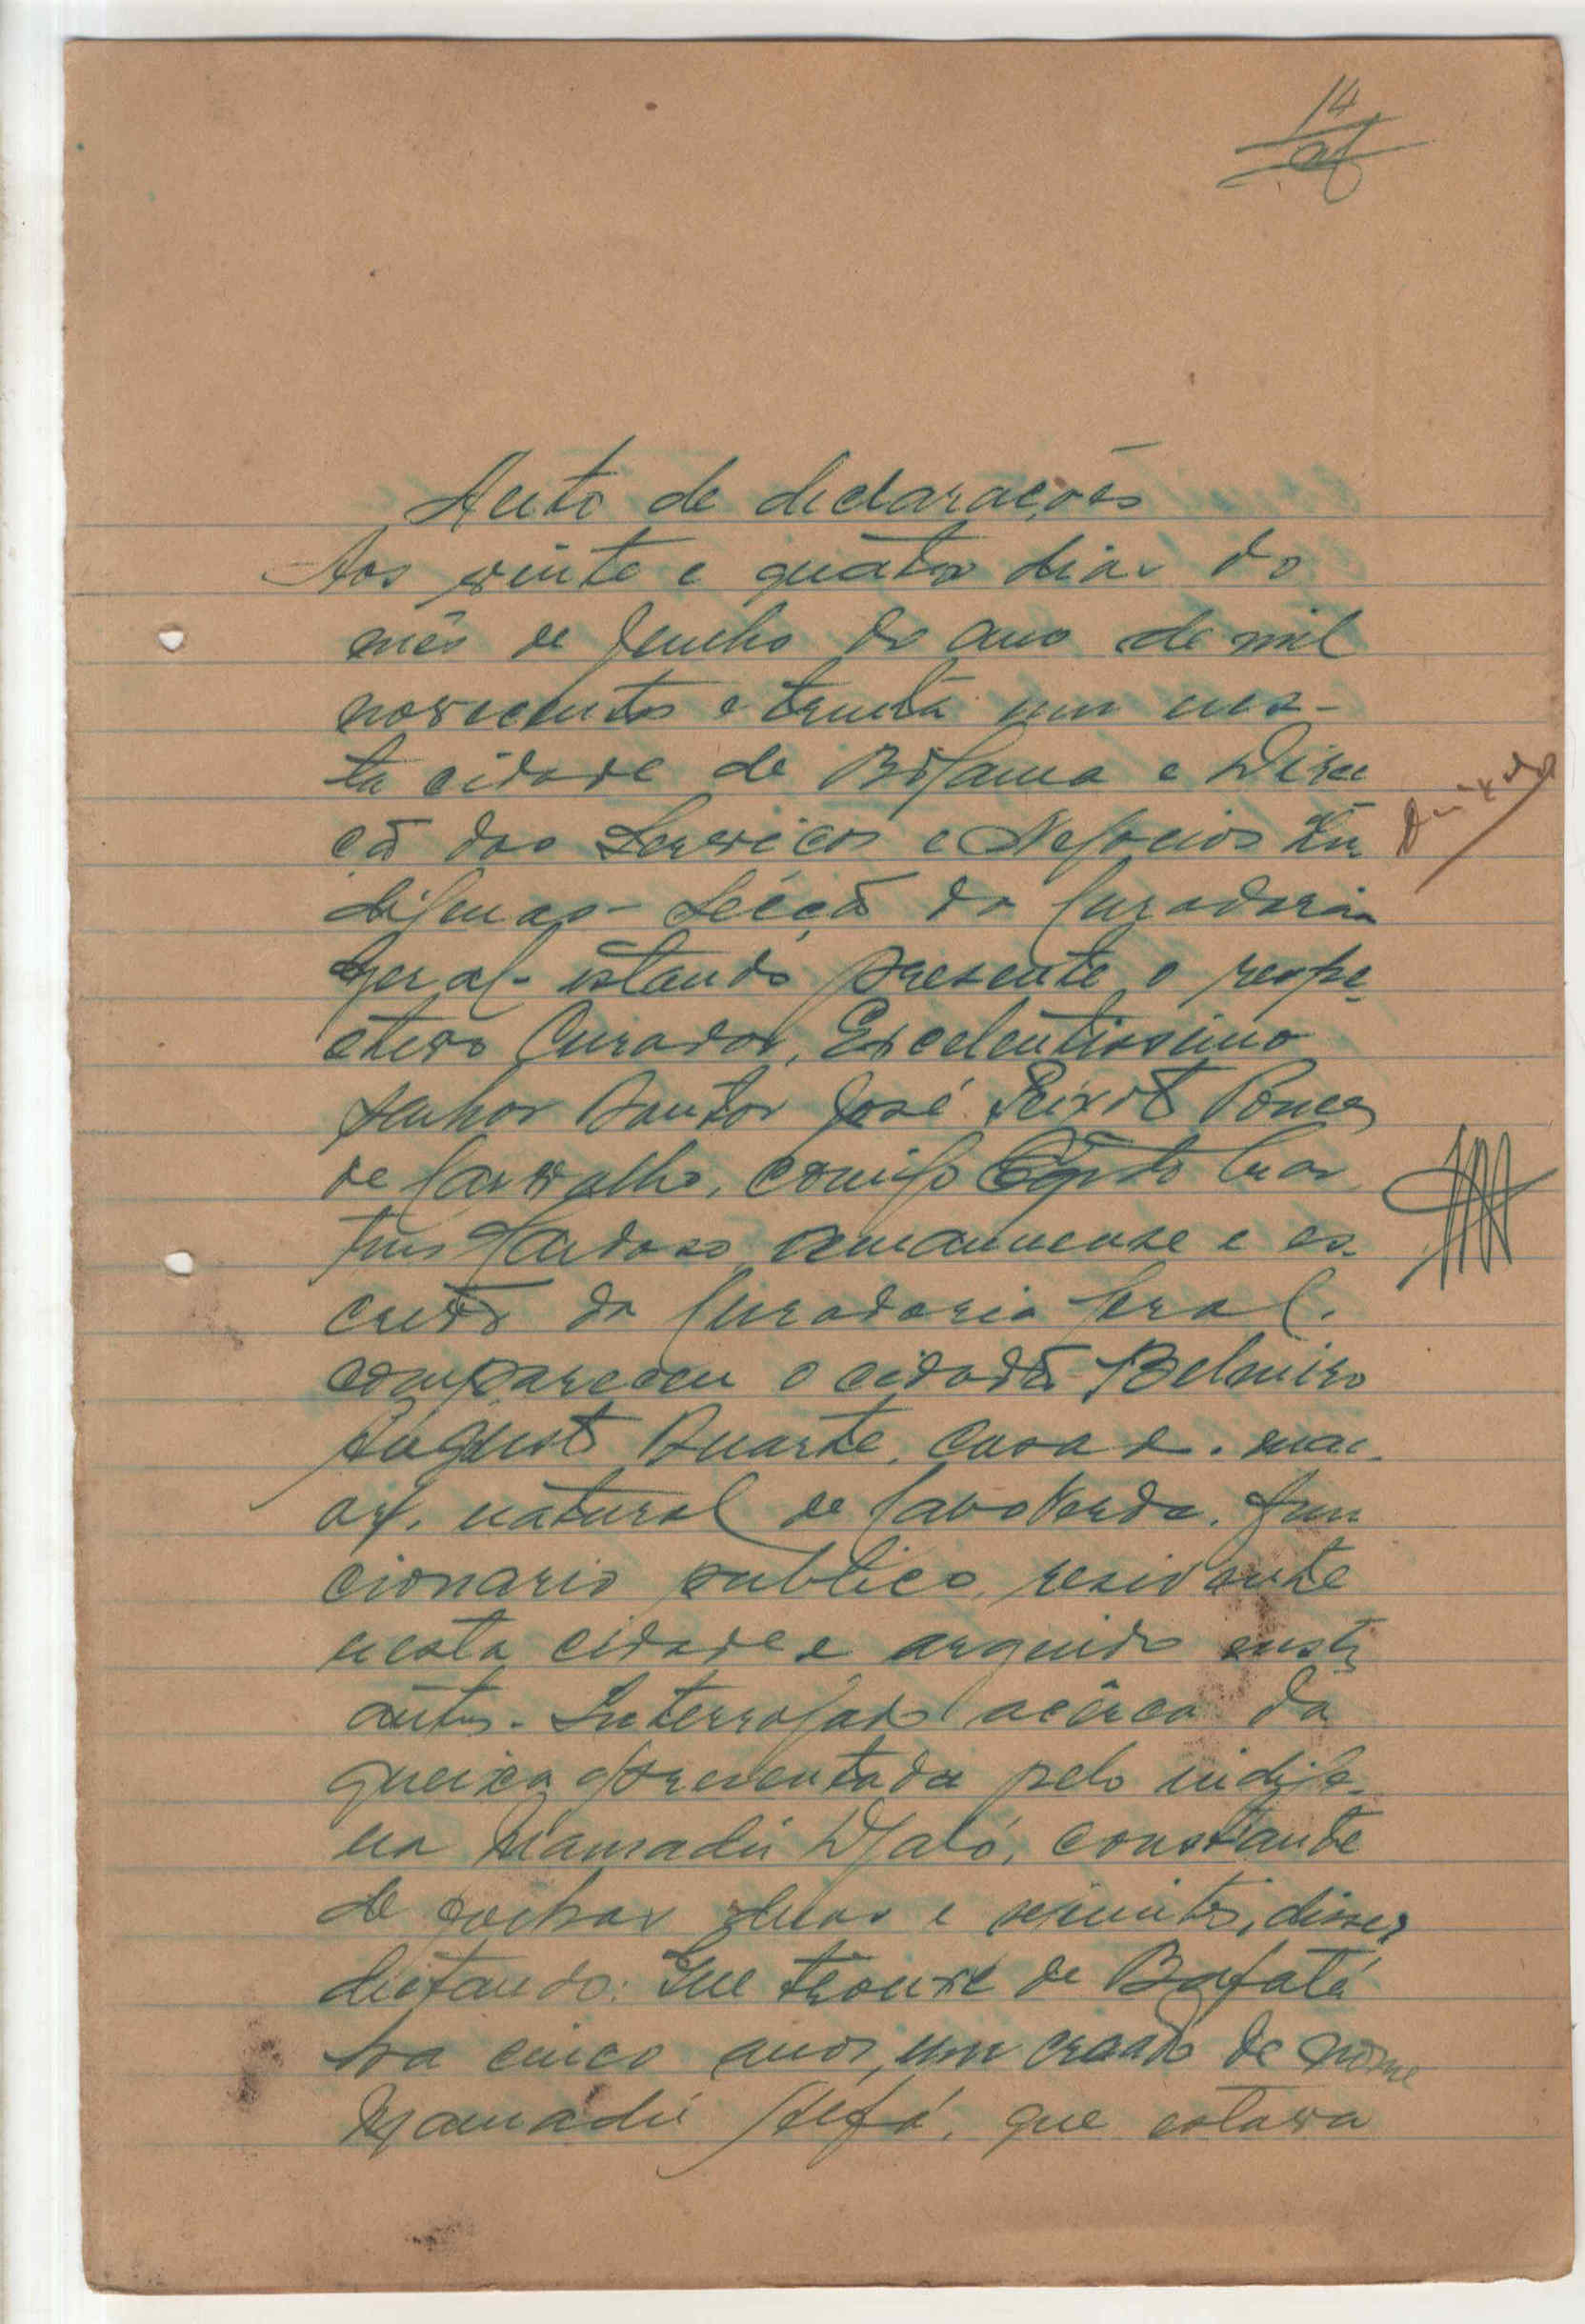 14
Auto de declarações
Aos vinte e quatro dias do
mês de Junho do ano de mil
novecentos e trinta um nes-
ta cidade de Bolama e Direc
ção dos Serviços e Negocios In
digenas - Secção da Curadoria
Geral - estando presente o respe-
ctivo Curador, Excelentissimo
Senhor Doutor José Peixoto Ponces
de Carvalho, comigo
Cardoso amanuense e es-
crivão da Curadoria Geral.
compareceu o cidadão Belmiro
Augusto Duarte, casado. mai-
or, natural de Cabo Verde. fun
cionario publico, residente
nesta cidade e arguido nestes
autos. Interrogado acêrca da
queixa apresentada pelo indige-
na Mamadú Djaló, constante
de folhas duas e seguintes, disse,
dictando: Que trouxe de Bafatá
ha cinco anos, um creado de nome
Mamadú Alfá, que estava